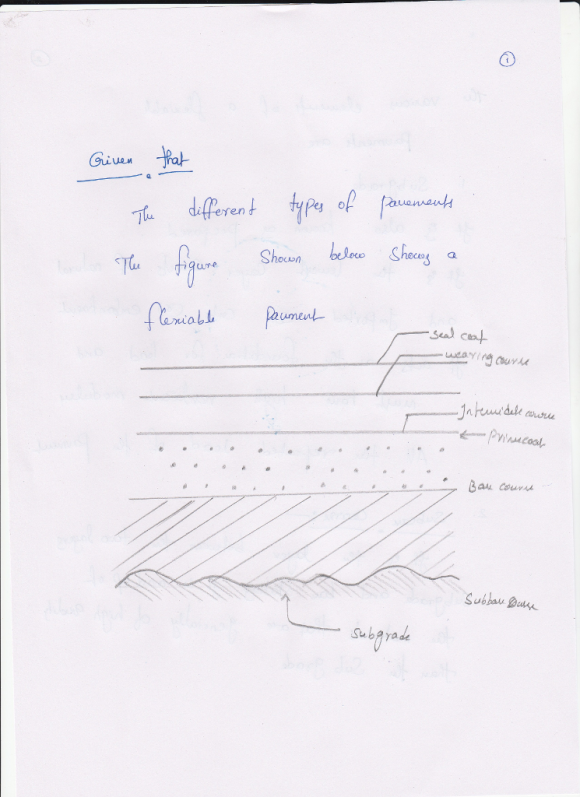 1
Given that
The different types of pavements
The figure Shown below Shows a
flexiable pavment
seal coat
wearing course
Intermidate course
Primecoat
Base course
Subbase
subgrade